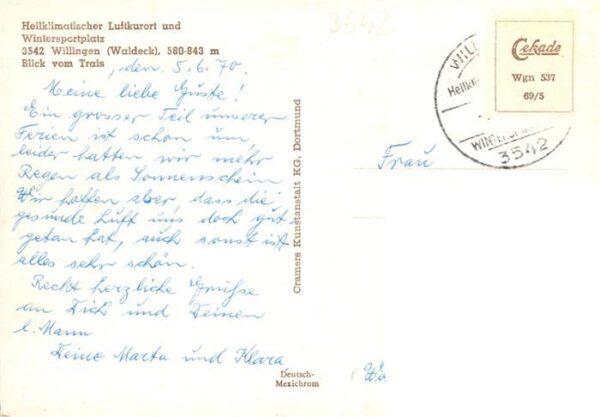 Heilklimatischer Luftkurort und
Wintersportplatz
3542 Willingen (Waldeck), 580-843 m
Blick vom Trais
, den 5.6.70.
Meine liebe Guste!
Ein grosser Teil unserer
Ferien ist schon um,
leider hatten wir mehr
Regen als Sonnenschein
Wir hoffen aber, dass die
gesunde Luft uns doch gut
getan hat, auch sonst ist
alles sehr schön.
Recht herzliche Grüsse
an Dich und Deinen
l. Mann
Deine Marta und Klara
Cramers Kunstanstalt KG, Dortmund
Deutsch-
Mexichrom
3542
WILL
Heilkl
WINTERSPO
3542
Cekade
Wgn 537
69/5
Frau